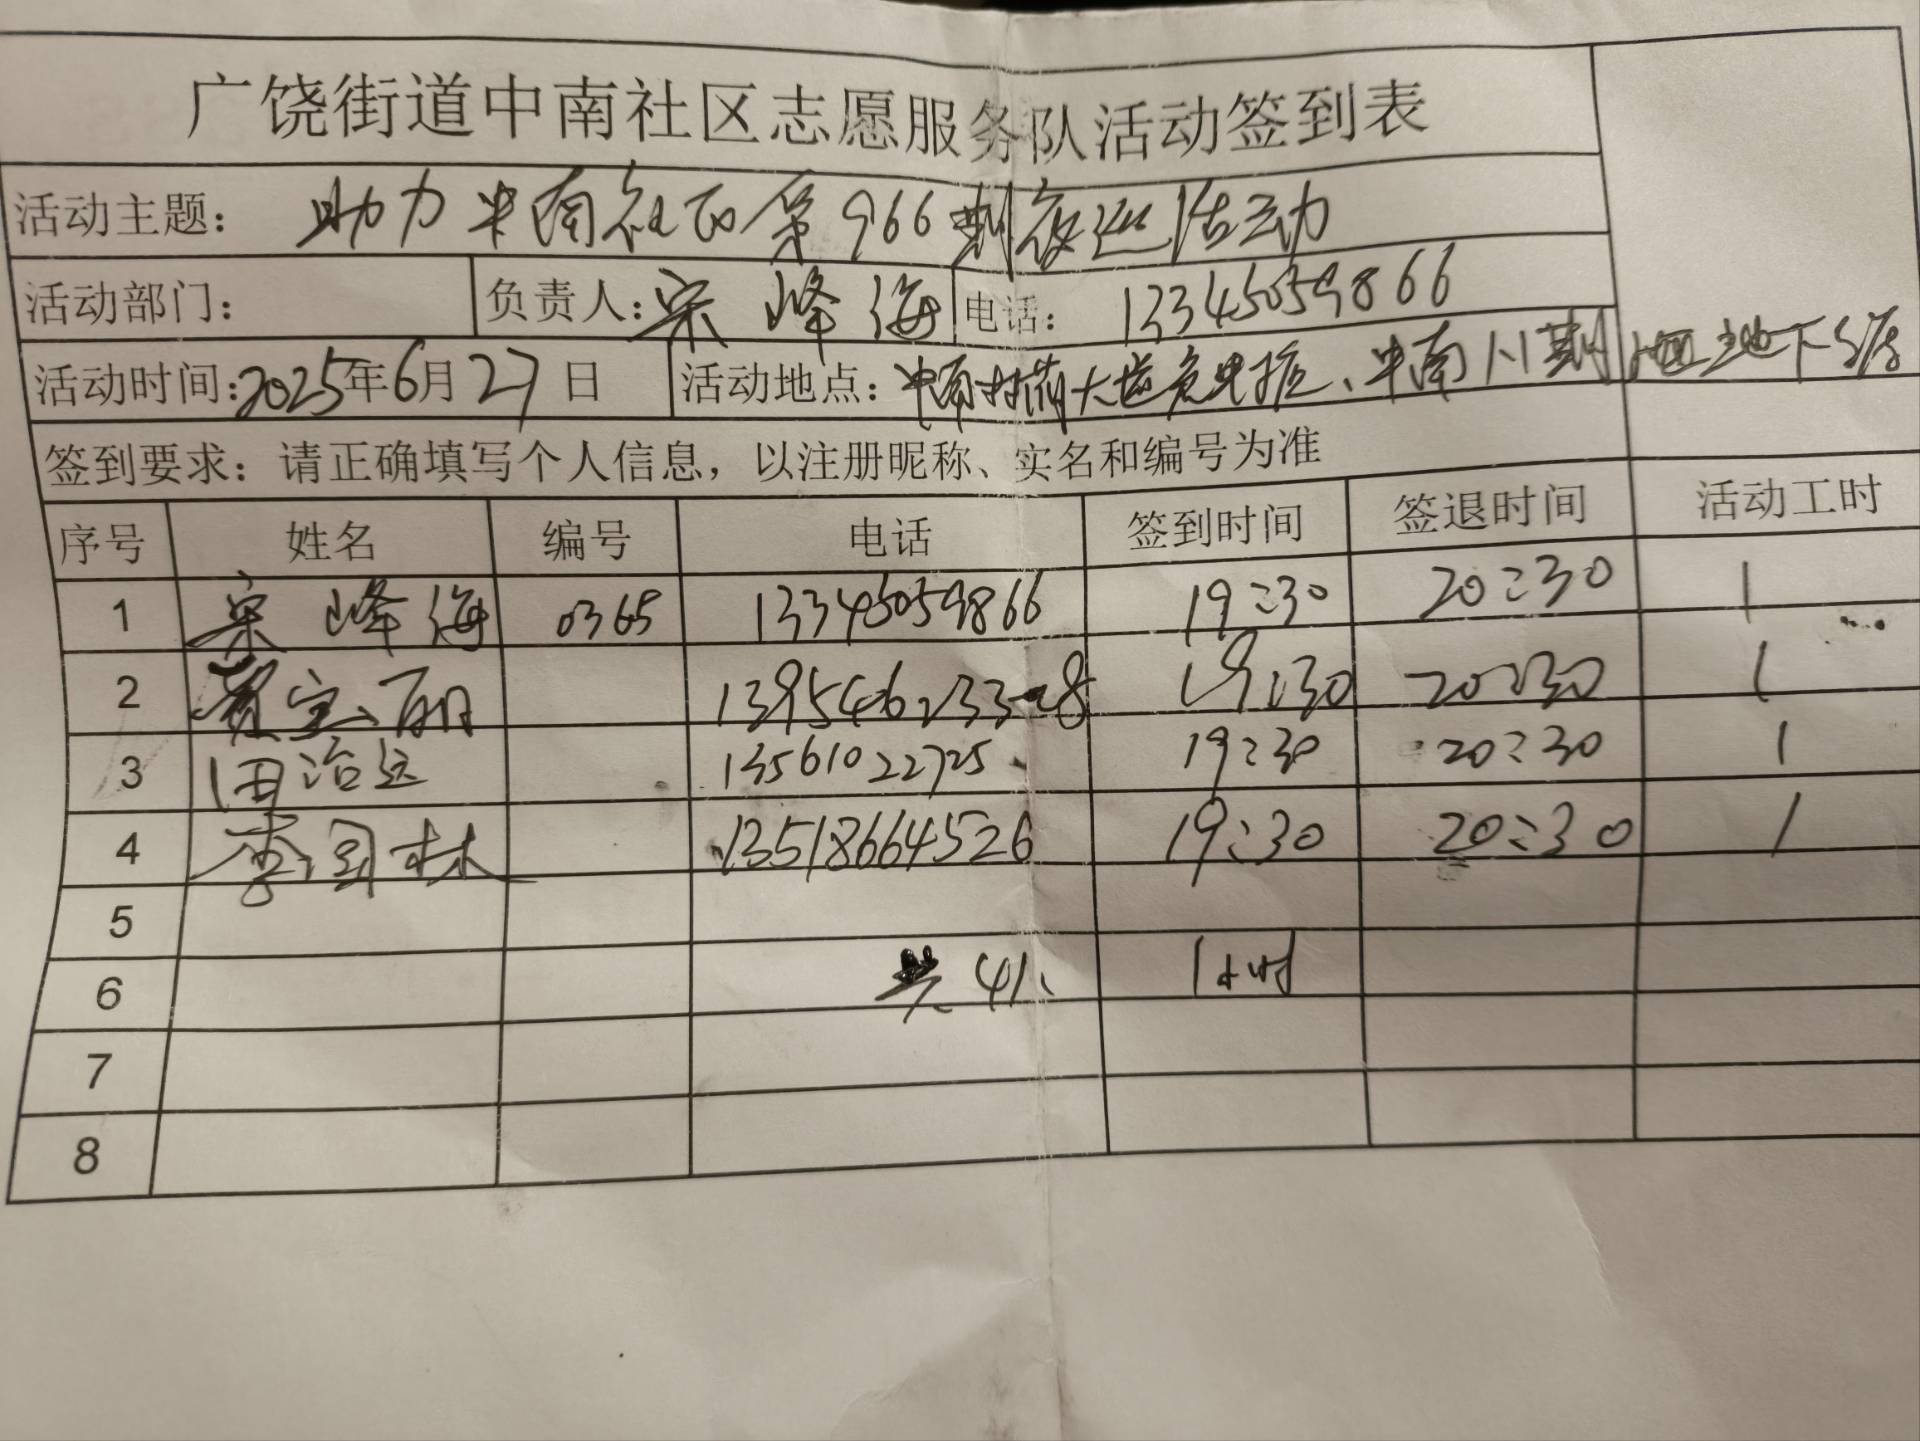 广饶街道中南社区志愿服务队活动签到表
活动主题: 助力中南社区第966期夜巡活动
活动部门: 负责人: 宋峰海 电话: 13345059866
活动时间: 2025年6月27日 活动地点: 中南 大道 、中南 期 地下
签到要求: 请正确填写个人信息，以注册昵称、实名和编号为准
序号 姓名 编号 电话 签到时间 签退时间 活动工时
1 宋峰海 0365 13345059866 19:30 20:30 1
2 宝丽 19:30 20:30 1
3 田治远 13561022725 19:30 20:30 1
4 李国林 13518664526 19:30 20:30 1
5
6 共4人 1小时
7
8